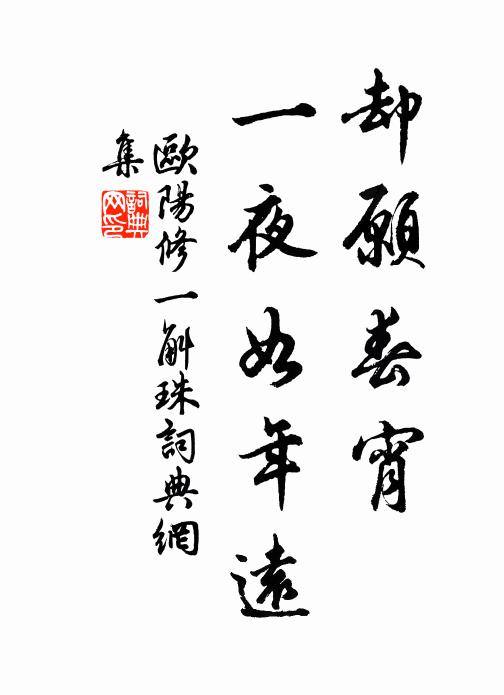 却願春宵
一夜如年遠
歐陽修一斛珠詞典網
集
詞典
网印